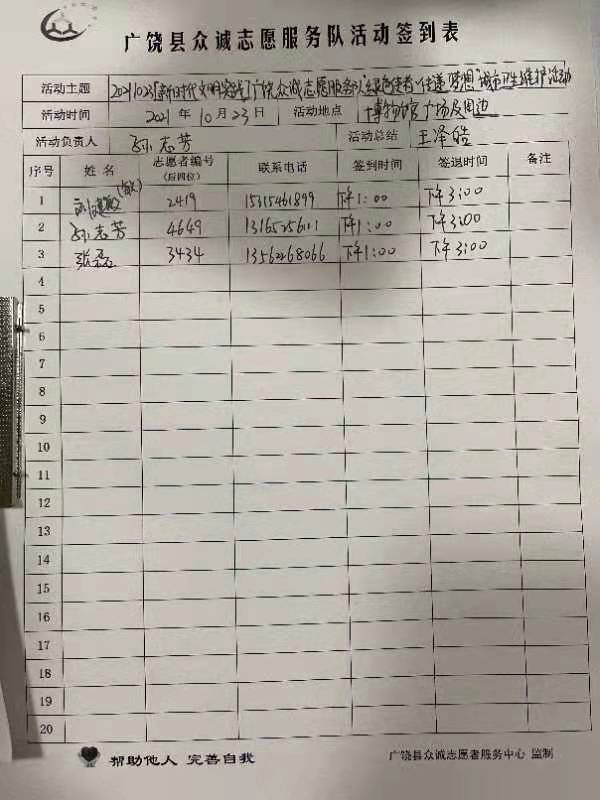 广饶县众诚志愿服务队活动签到表
活动主题 20211023[新时代文明实践]广饶众诚志愿服务队 城市卫生维护活动
活动时间 2021年10月23日 活动地点 博物馆广场及周边
活动负责人 孙志芳 活动总结 王泽皓
序号 姓名 志愿者编号 (后四位) 联系电话 签到时间 签退时间 备注
1 2419 15315461899 下午1:00 下午3:00
2 孙志芳 4649 13165256111 下午1:00 下午3:00
3 张磊 3434 13562268066 下午1:00 下午3:00
4
5
6
7
8
9
10
11
12
13
14
15
16
17
18
19
20
帮助他人 完善自我 广饶县众诚志愿者服务中心 监制